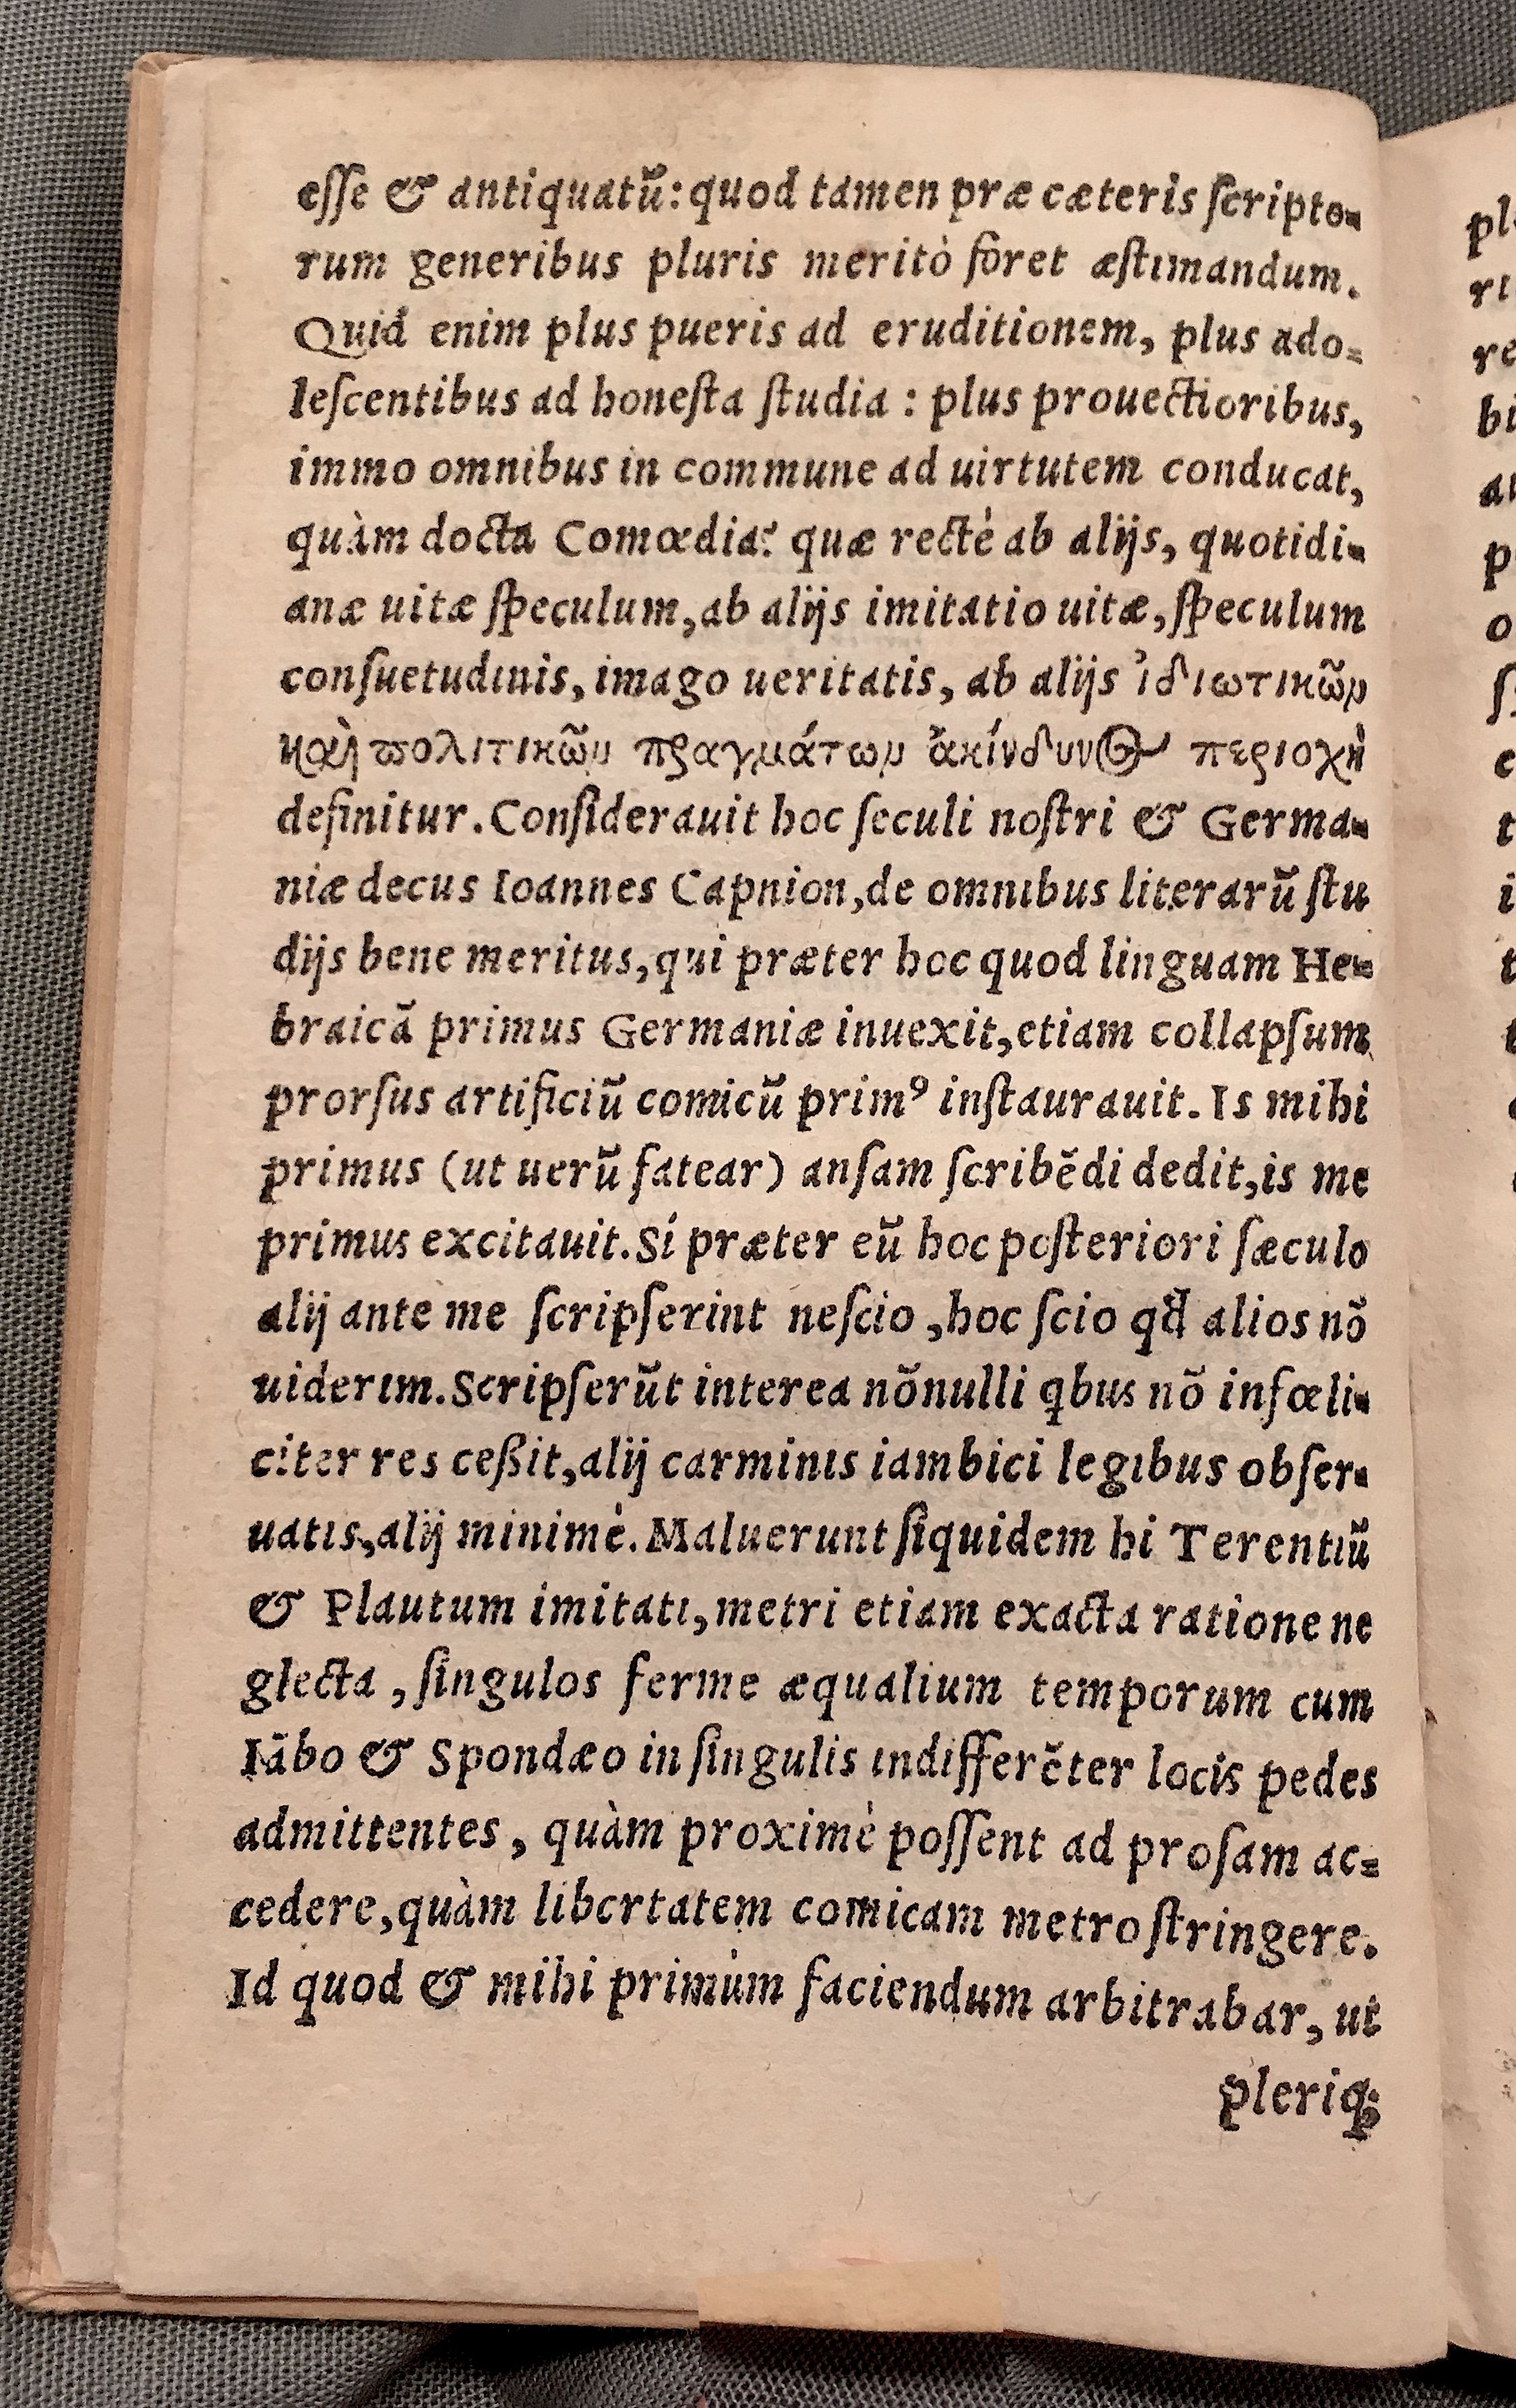 eſſe & antiquatũ: quod tamen præ cæteris ſcripto-
rum generibus pluris meritò foret æſtimandum.
Quid enim plus pueris ad eruditionem, plus ado-
leſcentibus ad honeſta ſtudia : plus prouectioribus,
immo omnibus in commune ad uirtutem conducat,
quàm docta Comœdia? quæ rectè ab alijs, quotidi-
anæ uitæ ſpeculum, ab alijs imitatio uitæ, ſpeculum
conſuetudinis, imago ueritatis, ab alijs ἰδιωτικῶν
καὶ πολιτικῶν πραγμάτων ἀκίνδυνος περιοχὴ
definitur. Conſiderauit hoc ſeculi noſtri & Germa-
niæ decus Ioannes Capnion, de omnibus literarũ ſtu
dijs bene meritus, qui præter hoc quod linguam He-
braicã primus Germaniæ inuexit, etiam collapſum
prorſus artificiũ comicũ primꝰ inſtaurauit. Is mihi
primus (ut uerũ fatear) anſam ſcribẽdi dedit, is me
primus excitauit. Sí præter eũ hoc poſteriori ſæculo
alij ante me ſcripſerint neſcio, hoc ſcio qđ alios nõ
uiderim. Scripſerũt interea nõnulli qbus nõ infœli-
citer res ceßit, alij carminis iambici legibus obſer-
uatis, alij minimè. Maluerunt ſiquidem hi Terentiũ
& Plautum imitati, metri etiam exacta ratione ne
glecta, ſingulos ferme æqualium temporum cum
Iãbo & Spondæo in ſingulis indifferẽter locis pedes
admittentes, quàm proximè poſſent ad proſam ac-
cedere, quàm libertatem comicam metro ſtringere.
Id quod & mihi primùm faciendum arbitrabar, ut
pleriqꝫ